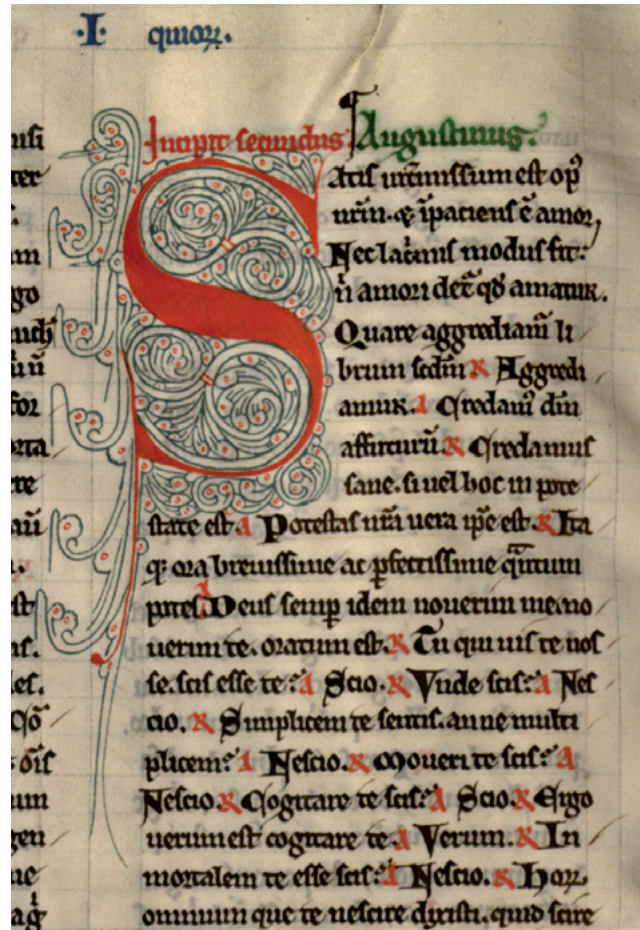 ·I· quioꝝ.
Incipit secundus Augustinus.
Satis int̄missum est op̄
nr̄m. ⁊ īpaciens ē amor,
Nec lac̄mis modus fit:
ñ amori det̄ qđ amatur.
Quare aggrediam᷑ li
brum sedm̄ R Aggredi
amur. A Credam᷑ dm̄
affuturū. R Credamus
sane. si uel hoc in pote
state est. A Potestas nr̄a uera ip̄e est. R Ita
q; ora breuissime ac ꝑfectissime qͣntum
potes A Deus semꝑ idem nouerim me. no
uerim te. oratum est. R Tu qui uis te nos
se. scis esse te? A Scio. R Vnde scis? A Nes
cio. R Simplicem te sentis. an ne multi
plicem? A Nescio. R Moueri te scis? A
Nescio R Cogitare te scis? A Scio. R Ergo
uerum est cogitare te. A Verum. R In
mortalem te esse scis? A Nescio. R Hoꝝ
omnium que te nescire dixisti. quid scire